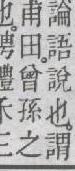 論語說也謂
甫田曾孫之
也聘禮禾三